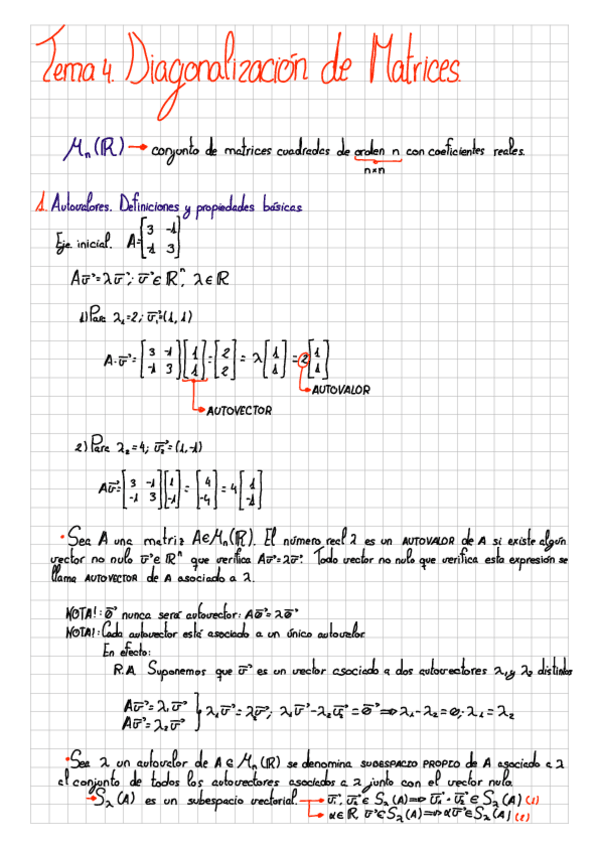 Tema 4. Diagonalización de Matrices.
Mₙ(ℝ) → conjunto de matrices cuadradas de orden n con coeficientes reales.
n×n
1. Autovalores. Definiciones y propiedades básicas
Eje. inicial. A=[3 -1; -1 3]
Av⃗=λv⃗; v⃗∈ℝⁿ, λ∈ℝ
1) Para λ₁=2; v⃗₁=(1,1)
A·v⃗=[3 -1; -1 3][1; 1]=[2; 2]=λ[1; 1]=2[1; 1]
AUTOVALOR
AUTOVECTOR
2) Para λ₂=4; v⃗₂=(1,-1)
Av⃗=[3 -1; -1 3][1; -1]=[4; -4]=4[1; -1]
• Sea A una matriz A∈Mₙ(ℝ). El número real λ es un AUTOVALOR de A si existe algún
vector no nulo v⃗∈ℝⁿ que verifica Av⃗=λv⃗. Todo vector no nulo que verifica esta expresión se
llama AUTOVECTOR de A asociado a λ.
NOTA!: 0⃗ nunca será autovector: A0⃗=λ0⃗
NOTA!: Cada autovector está asociado a un único autovalor
En efecto:
R.A. Suponemos que v⃗ es un vector asociado a dos autovectores λ₁ y λ₂ distintos
Av⃗=λ₁v⃗
Av⃗=λ₂v⃗ } λ₁v⃗=λ₂v⃗; λ₁v⃗-λ₂v⃗=0⃗ ⇒ λ₁-λ₂=0; λ₁=λ₂
• Sea λ un autovalor de A∈Mₙ(ℝ) se denomina SUBESPACIO PROPIO de A asociado a λ
al conjunto de todos los autovectores asociados a λ junto con el vector nulo.
→ S_λ(A) es un subespacio vectorial. → v⃗₁, v⃗₂∈S_λ(A) ⇒ v⃗₁+v⃗₂∈S_λ(A) (1)
→ α∈ℝ, v⃗∈S_λ(A) ⇒ αv⃗∈S_λ(A) (2)